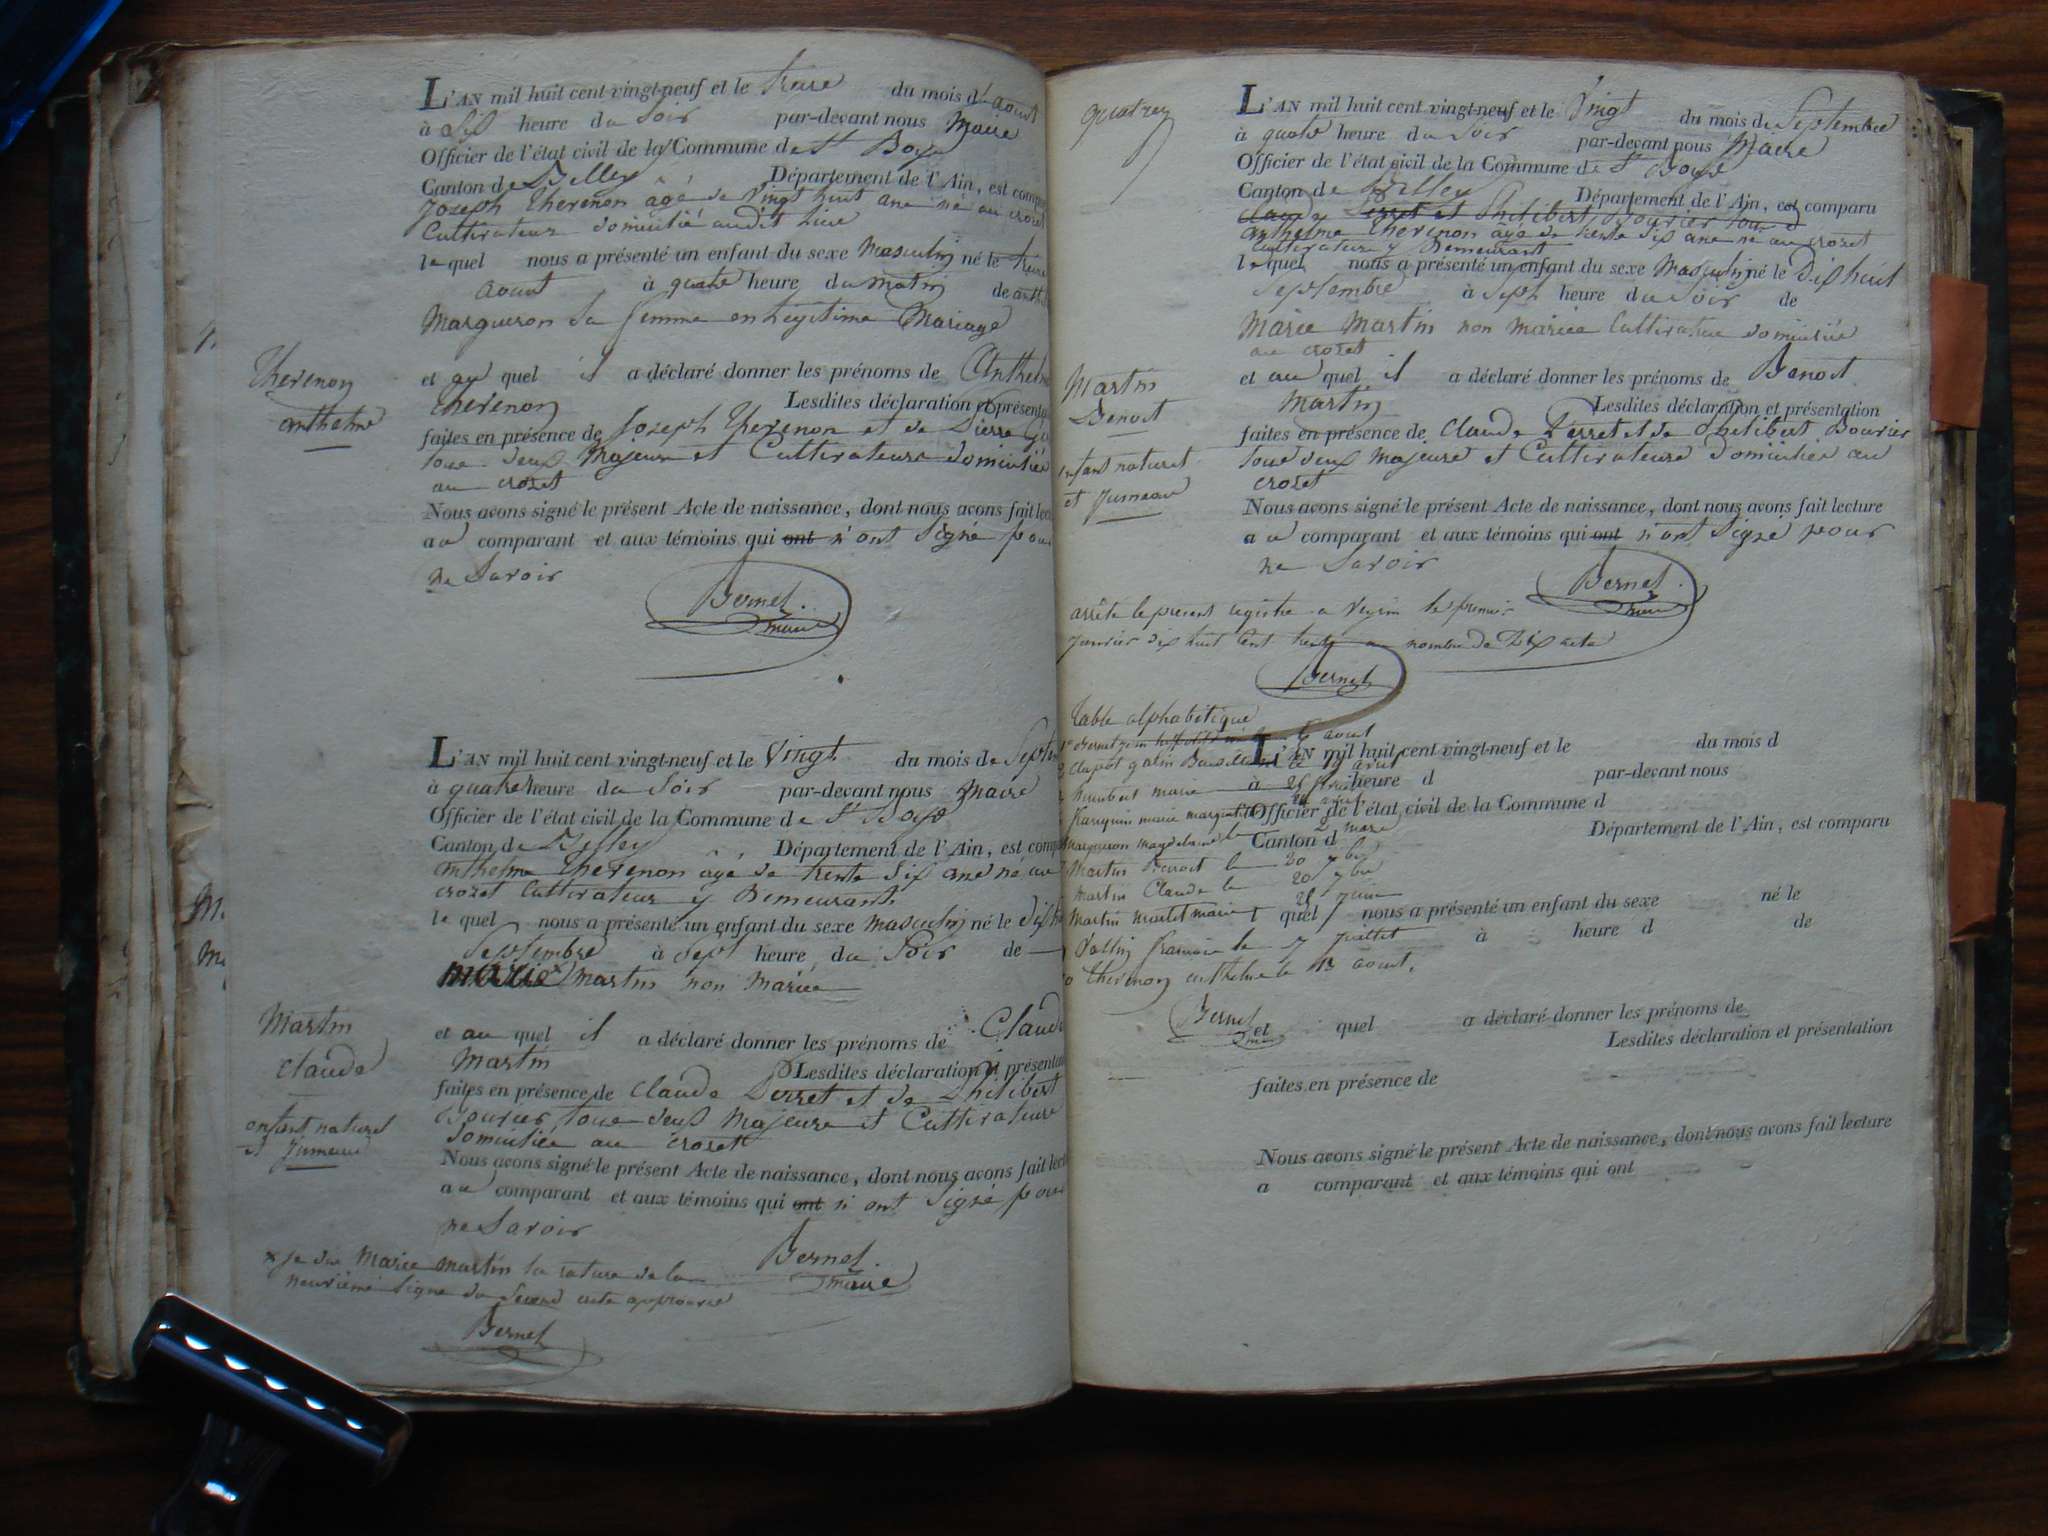 L'AN mil huit cent vingt-neuf et le treize du mois d'aout
à Six heure du Soir par-devant nous Maire
Officier de l'état civil de la Commune de St Boys
Canton de Belley Département de l'Ain, est comp
Joseph Thevenon âgé de Vingt huit ans né au crozet
Cultivateur domicilié audit lieu
lequel nous a présenté un enfant du sexe Masculin né le treize
aout à quatre heure du matin de anth
Margueron Sa femme en Legitime Mariage
Thevenon
anthelme
et au quel il a déclaré donner les prénoms de Anthelme
Thevenon Lesdites déclaration et présenta
faites en présence de Joseph Thevenon et de Pierre
tous deux Majeurs et Cultivateurs domiciliés
au crozet
Nous avons signé le présent Acte de naissance, dont nous avons fait lec
au comparant et aux témoins qui ont n'ont Signé pour
ne Savoir
Bernel
maire
L'AN mil huit cent vingt-neuf et le Vingt du mois de Septem
à quatre heure du Soir par-devant nous Maire
Officier de l'état civil de la Commune de St Boys
Canton de Belley Département de l'Ain, est comp
anthelme Thevenon âgé de trente Six ans né au
crozet Cultivateur y Demeurant
lequel nous a présenté un enfant du sexe masculin né le dixh
Septembre à Sept heure du Soir de
marie x Martin non Mariée
Martin
Claude
enfant naturel
et Jumeau
et au quel il a déclaré donner les prénoms de Claude
Martin Lesdites déclaration et présentat
faites en présence de Claude Perret et de Philibert
Bourier tous deux Majeurs et Cultivateurs
Domiciliés au crozet
Nous avons signé le présent Acte de naissance, dont nous avons fait lect
au comparant et aux témoins qui ont n'ont Signé pour
ne Savoir
x je dis Marie Martin la rature de la
neuvième ligne du Second acte approuvée
Bernel
maire
Bernel
L'AN mil huit cent vingt-neuf et le Vingt du mois de Septembre
à quatre heure du Soir par-devant nous Maire
Officier de l'état civil de la Commune de St Boys
Canton de Belley Département de l'Ain, est comparu
Claude Perret et Philibert Bourier tous d
anthelme Thevenon âgé de trente six ans né au crozet
Cultivateur y Demeurant
lequel nous a présenté un enfant du sexe Masculin né le Dix huit
Septembre à Sept heure du Soir de
Marie Martin non Mariée Cultivatrice domiciliée
au crozet
Martin
Benoit
enfant naturel
et Jumeau
et au quel il a déclaré donner les prénoms de Benoit
Martin Lesdites déclaration et présentation
faites en présence de Claude Perret et de Philibert Bourier
tous deux Majeurs et Cultivateurs Domiciliés au
crozet
Nous avons signé le présent Acte de naissance, dont nous avons fait lecture
au comparant et aux témoins qui ont n'ont Signé pour
ne Savoir
Bernel
maire
arrêté le present registre a Veyrin le premier
Janvier dix huit cent trente au nombre de Dix acte
Bernel
Table alphabétique
aout
humbert marie
marie
Margueron Magdelaine le 2 mars
Martin Benoit le 20 7bre
Martin Claude le 20 7bre
Martin marie juin
Vallin le 7 juillet
Thevenon anthelme le 13 aout.
Bernel
maire
L'AN mil huit cent vingt-neuf et le du mois d
à heure d par-devant nous
Officier de l'état civil de la Commune d
Canton d Département de l'Ain, est comparu
l quel nous a présenté un enfant du sexe né le
à heure d de
et quel a déclaré donner les prénoms de
Lesdites déclaration et présentation
faites en présence de
Nous avons signé le présent Acte de naissance, dont nous avons fait lecture
a comparant et aux témoins qui ont